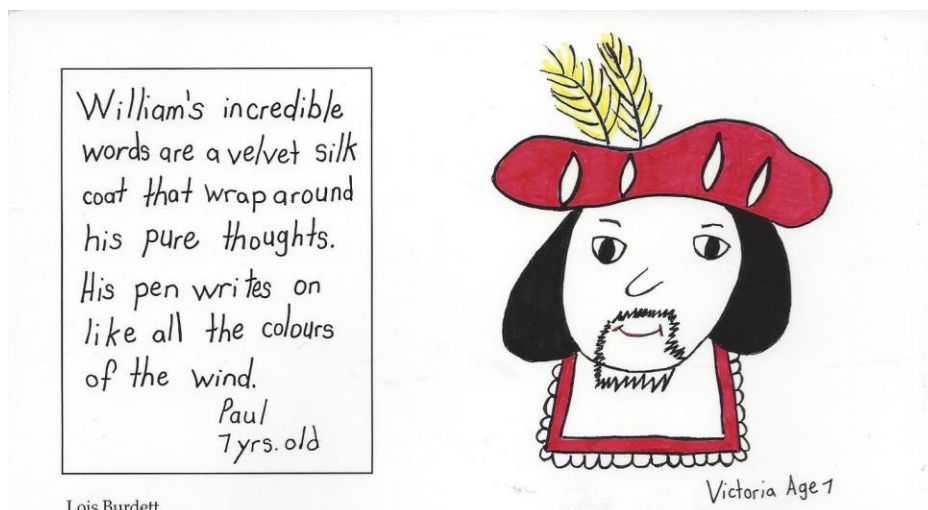 William's incredible
words are a velvet silk
coat that wrap around
his pure thoughts.
His pen writes on
like all the colours
of the wind.
Paul
7 yrs. old
Victoria Age 7
Lois Burdett